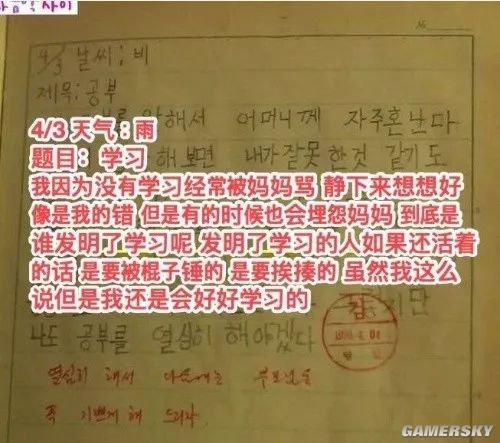 사이
4/3 날씨 : 비
제목 : 공부
해서 어머니께 자주 혼난다
해보면 내가 잘못한것 같기도
4/3 天气：雨
题目：学习
我因为没有学习经常被妈妈骂 静下来想想好
像是我的错 但是有的时候也会埋怨妈妈 到底是
谁发明了学习呢 发明了学习的人如果还活着
的话 是要被棍子锤的 是要挨揍的 虽然我这么
说但是我还是会好好学习的
나도 공부를 열심히 해야겠다
열심히 해서 다음에는 부모님을
꼭 기쁘게 해 드리자
GAMERSKY